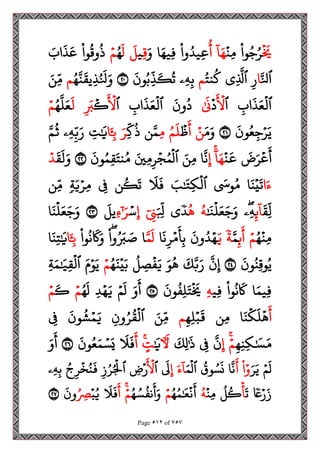 يَّخْرُجُوا۟ مِنْهَآ أُعِيدُوا۟ فِيهَا وَقِيلَ لَهُمْ ذُوقُوا۟ عَذَابَ
ٱلنَّارِ ٱلَّذِى كُنتُم بِهِۦ تُكَذِّبُونَ ٢٠ وَلَنُذِيقَنَّهُم مِّنَ
ٱلْعَذَابِ ٱلْأَدْنَىٰ دُونَ ٱلْعَذَابِ ٱلْأَكْبَرِ لَعَلَّهُمْ
يَرْجِعُونَ ٢١ وَمَنْ أَظْلَمُ مِمَّن ذُكِّرَ بِـَٔايَٰتِ رَبِّهِۦ ثُمَّ
أَعْرَضَ عَنْهَآ إِنَّا مِنَ ٱلْمُجْرِمِينَ مُنتَقِمُونَ ٢٢ وَلَقَدْ
ءَاتَيْنَا مُوسَى ٱلْكِتَٰبَ فَلَا تَكُن فِى مِرْيَةٍ مِّن
لِّقَآئِهِۦ وَجَعَلْنَٰهُ هُدًى لِّبَنِىٓ إِسْرَٰٓءِيلَ ٢٣ وَجَعَلْنَا
مِنْهُمْ أَئِمَّةً يَهْدُونَ بِأَمْرِنَا لَمَّا صَبَرُوا۟ وَكَانُوا۟ بِـَٔايَٰتِنَا
يُوقِنُونَ ٢٤ إِنَّ رَبَّكَ هُوَ يَفْصِلُ بَيْنَهُمْ يَوْمَ ٱلْقِيَٰمَةِ
فِيمَا كَانُوا۟ فِيهِ يَخْتَلِفُونَ ٢٥ أَوَلَمْ يَهْدِ لَهُمْ كَمْ
أَهْلَكْنَا مِن قَبْلِهِم مِّنَ ٱلْقُرُونِ يَمْشُونَ فِى
مَسَٰكِنِهِمْ إِنَّ فِى ذَٰلِكَ لَءَايَٰتٍ أَفَلَا يَسْمَعُونَ ٢٦ أَوَ
لَمْ يَرَوْا۟ أَنَّا نَسُوقُ ٱلْمَآءَ إِلَى ٱلْأَرْضِ ٱلْجُرُزِ فَنُخْرِجُ بِهِۦ
زَرْعًا تَأْكُلُ مِنْهُ أَنْعَٰمُهُمْ وَأَنفُسُهُمْ أَفَلَا يُبْصِرُونَ ٢٧
Page ٥١٢ of ٧٥٧